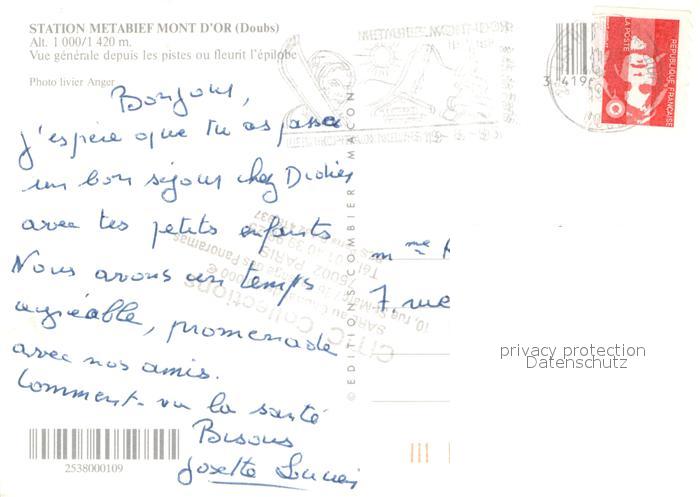 STATION METABIEF MONT D'OR (Doubs)
Alt. 1 000/1 420 m.
Vue générale depuis les pistes ou fleurit l'épilobe
Photo livier Anger
Bonjour,
j'espère que tu as passé
un bon séjour chez Didier
avec tes petits enfants
Nous avons un temps
agréable, promenade
avec nos amis.
Comment va la santé
Bisous
Josette
2538000109
© EDITIONS COMBIER MACON
CPC Collections
75002 PARIS
Passage des Panoramas
mme
7, rue
LA POSTE
REPUBLIQUE FRANÇAISE
privacy protection
Datenschutz